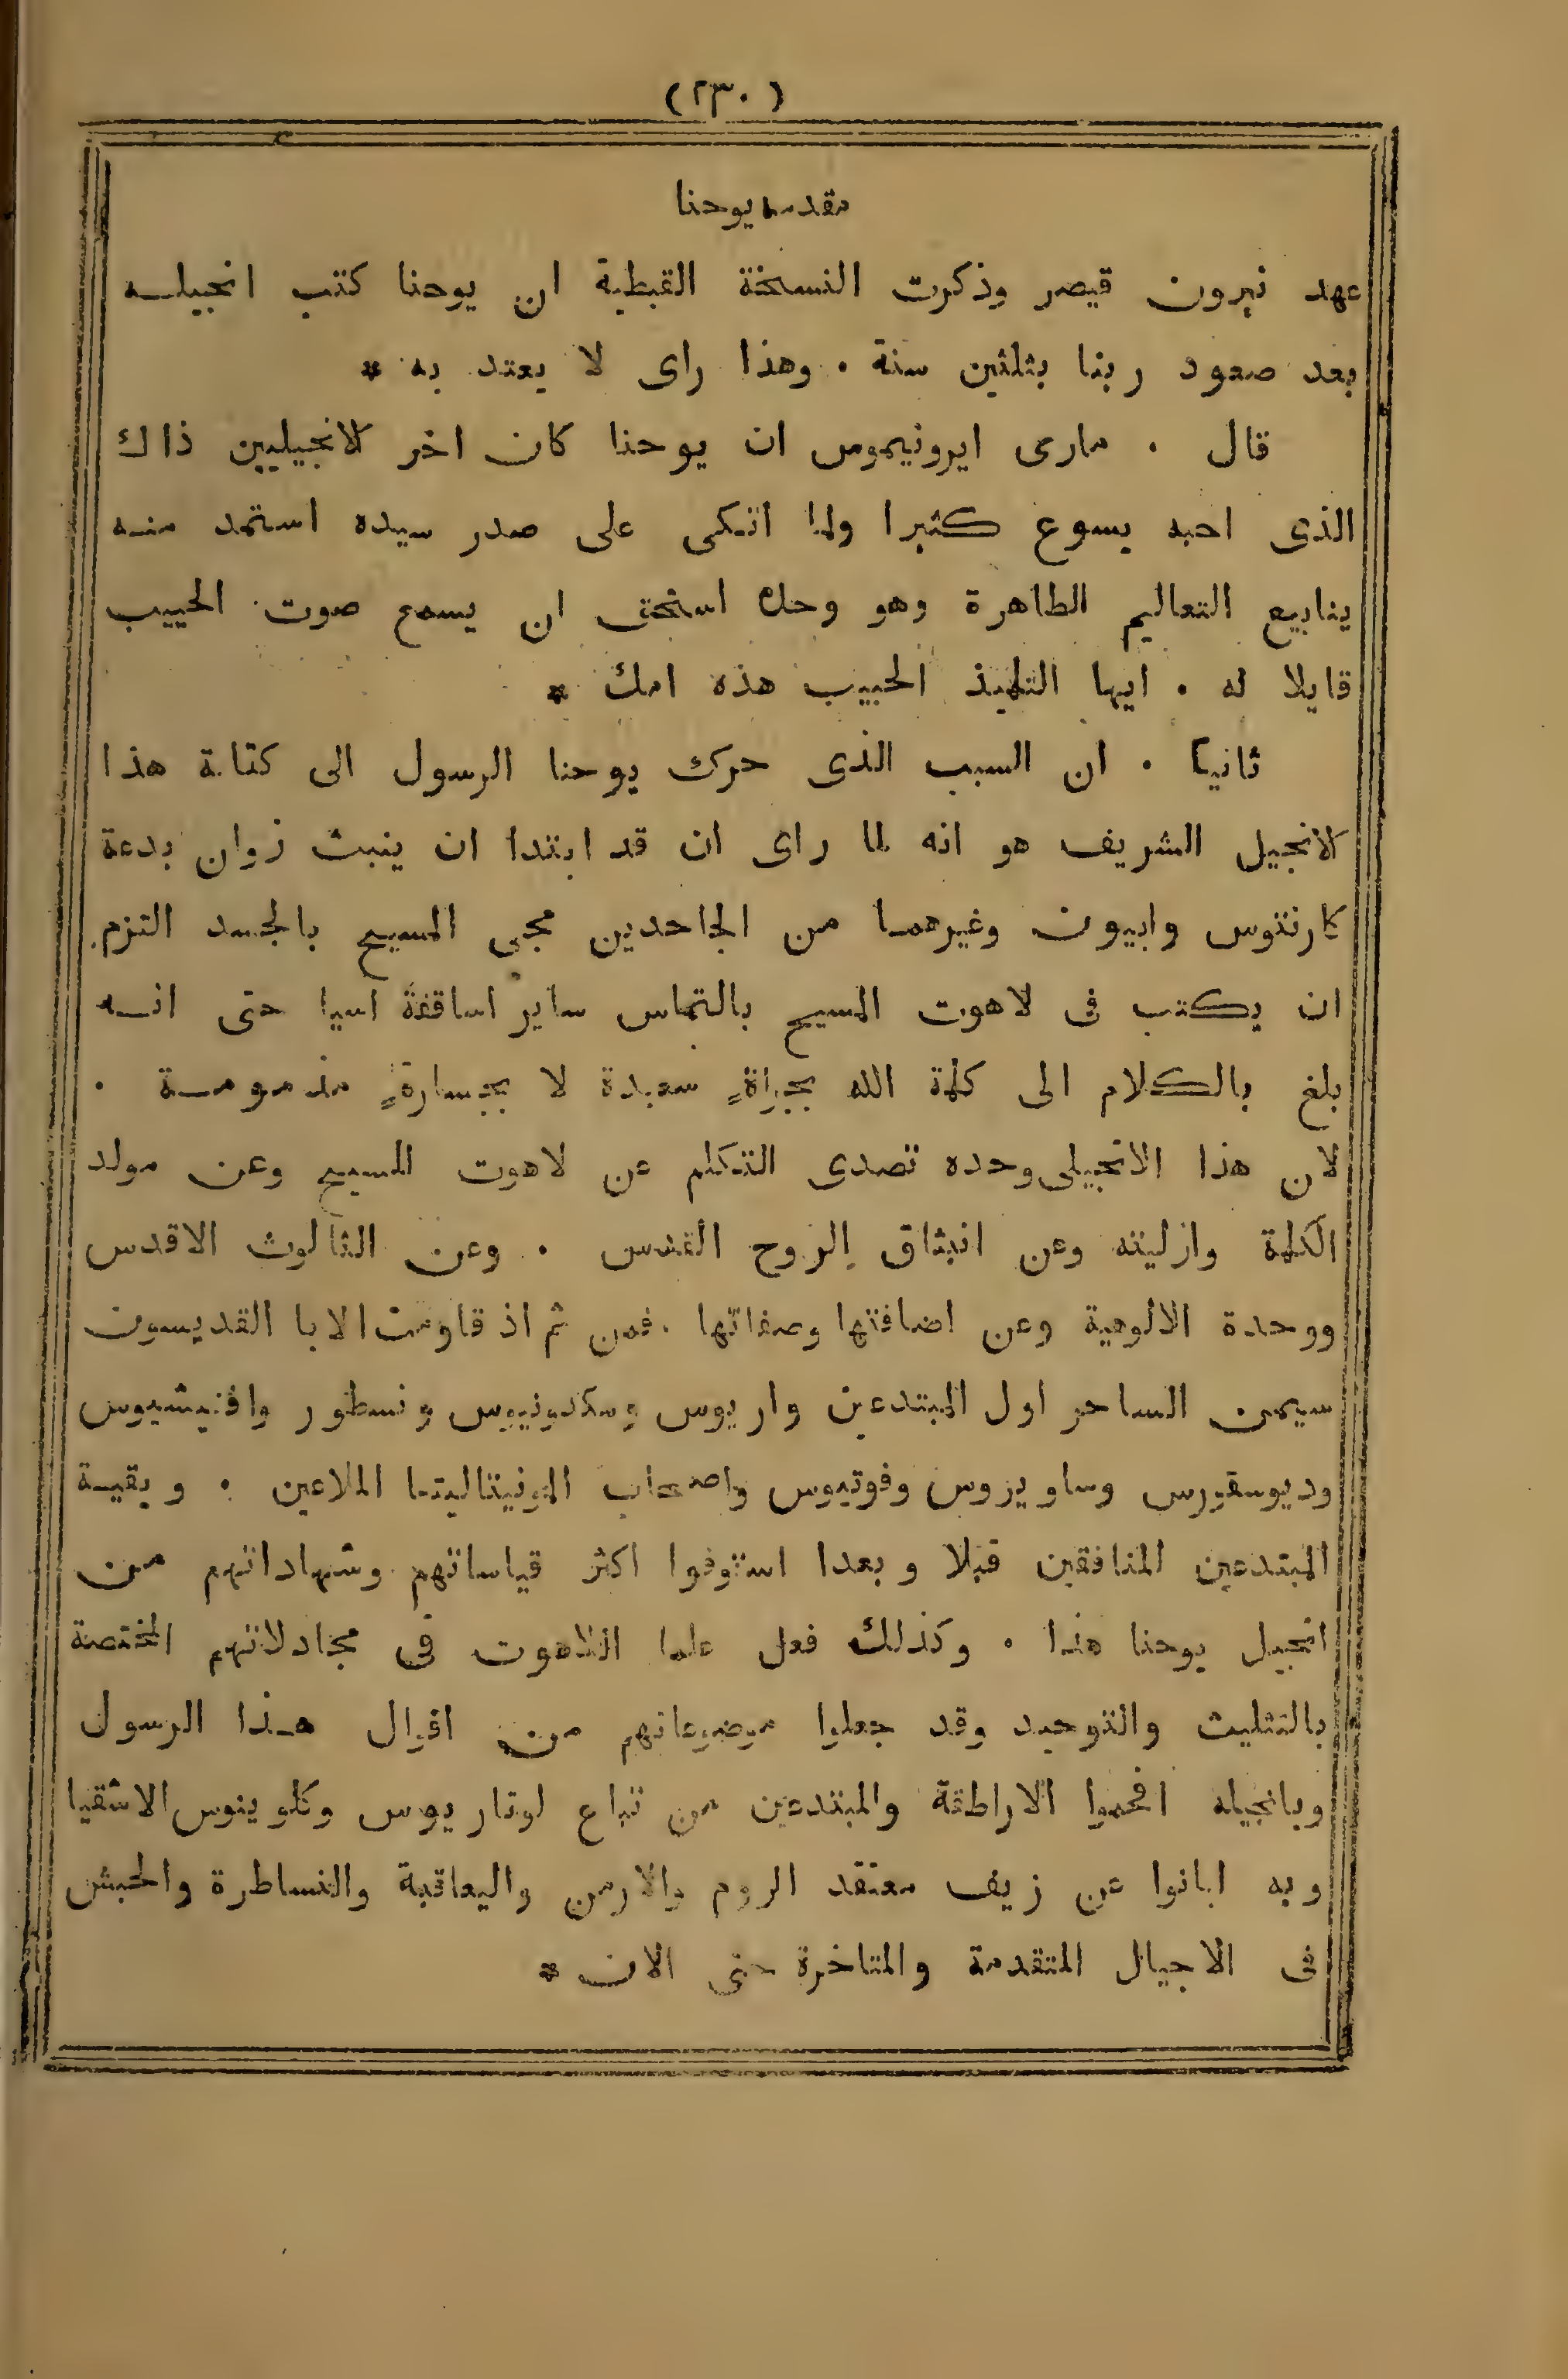 (٢٣٠)
مقدمة يوحنا
عهد نيرون قيصر وذكرت النسخة القبطية ان يوحنا كتب انجيله
بعد صعود ربنا بثلثين سنة . وهذا راى لا يعتد به *
قال . مارى ايرونيموس ان يوحنا كان اخر الانجيليين ذاك
الذى احبه يسوع كثيرا ولما اتكى على صدر سيده استمد منه
ينابيع التعاليم الطاهرة وهو وحده استحق ان يسمع صوت الحبيب
قايلا له . ايها التلميذ الحبيب هذه امك *
ثانيا . ان السبب الذى حرك يوحنا الرسول الى كتابة هذا
الانجيل الشريف هو انه لما راى ان قد ابتدا ان ينبث زوان بدعة
كارنتوس وابيون وغيرهما من الجاحدين مجى المسيح بالجسد التزم
ان يكتب فى لاهوت المسيح بالتماس ساير اساقفة اسيا حتى انه
بلغ بالكلام الى كلمة الله بجراةٍ سعيدة لا بجسارةٍ مذمومة .
لان هذا الانجيلى وحده تصدى التكلم عن لاهوت المسيح وعن مولد
الكلمة وازليته وعن انبثاق الروح القدس . وعن الثالوث الاقدس
ووحدة الالوهية وعن اضافتها وصفاتها . فمن ثم اذ قاومت الابا القديسون
سيمن الساحر اول المبتدعين واريوس ومكدونيوس ونسطور وافتيشيوس
وديوسقورس وساويروس وفوتيوس واصحاب المونيتاليتا الملاعين . وبقية
المبتدعين المنافقين قبلا وبعدا استوفوا اكثر قياساتهم وشهاداتهم من
انجيل يوحنا هذا . وكذلك فعل علما اللاهوت فى مجادلاتهم المختصة
بالتثليث والتوحيد وقد جعلوا موضوعاتهم من اقوال هذا الرسول
وبانجيله افحموا الاراطقة والمبتدعين من تباع لوتاريوس وكلوينوس الاشقيا
وبه ابانوا عن زيف معتقد الروم والارمن واليعاقبة والنساطرة والحبش
فى الاجيال المتقدمة والمتاخرة حتى الان *